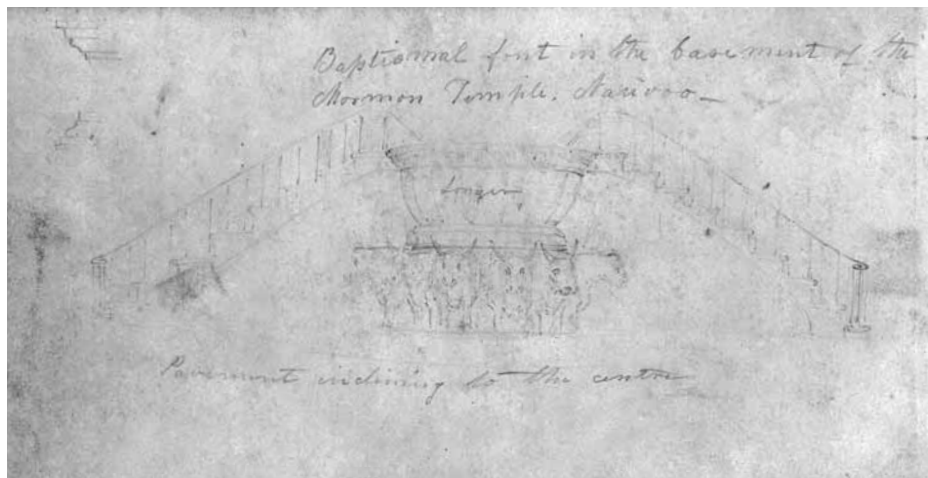 Baptismal font in the basement of the
Mormon Temple. Nauvoo—
Longer
Pavement inclining to the centre